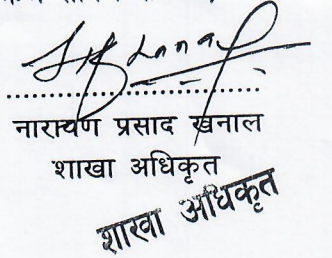 नारायण प्रसाद खनाल
शाखा अधिकृत
शाखा अधिकृत